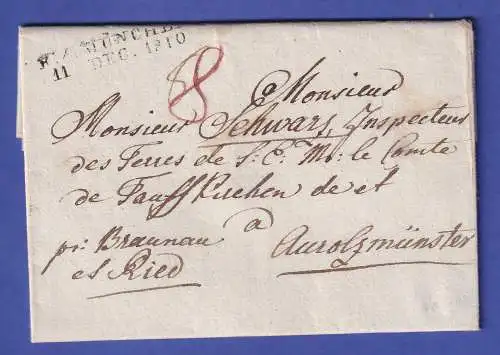 R.4.MÜNCHEN
11 DEC. 1810
8
a Monsieur
Monsieur Schwarz, Inspecteur
des Terres de S: E: M: le Comte
de Tauffkirchen de et
a
pr: Braunau
et Ried
Aurolzmünster